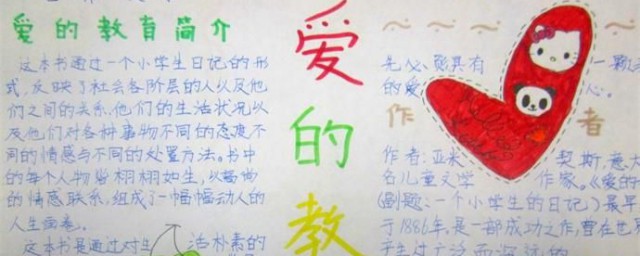 爱的教育简介
这本书通过一个小学生日记的形
式,反映了社会各阶层的人以及他
们之间的关系.他们的生活状况以
及他们对各种事物不同的态度不
同的情感与不同的处置方法。书中
的每个人物皆栩栩如生,以
的情感联系,组成了一幅幅动人的
人生画卷。
这本书是通过对 活朴素的
爱
的
教
具有 一颗
的爱 心。
作 者
作者:亚米 契斯,意
名儿童文学 作家。《爱的
(副题:一个小学生的日记)最早
于1886年,是一部成功之作,曾在世
产生过广泛而深远的